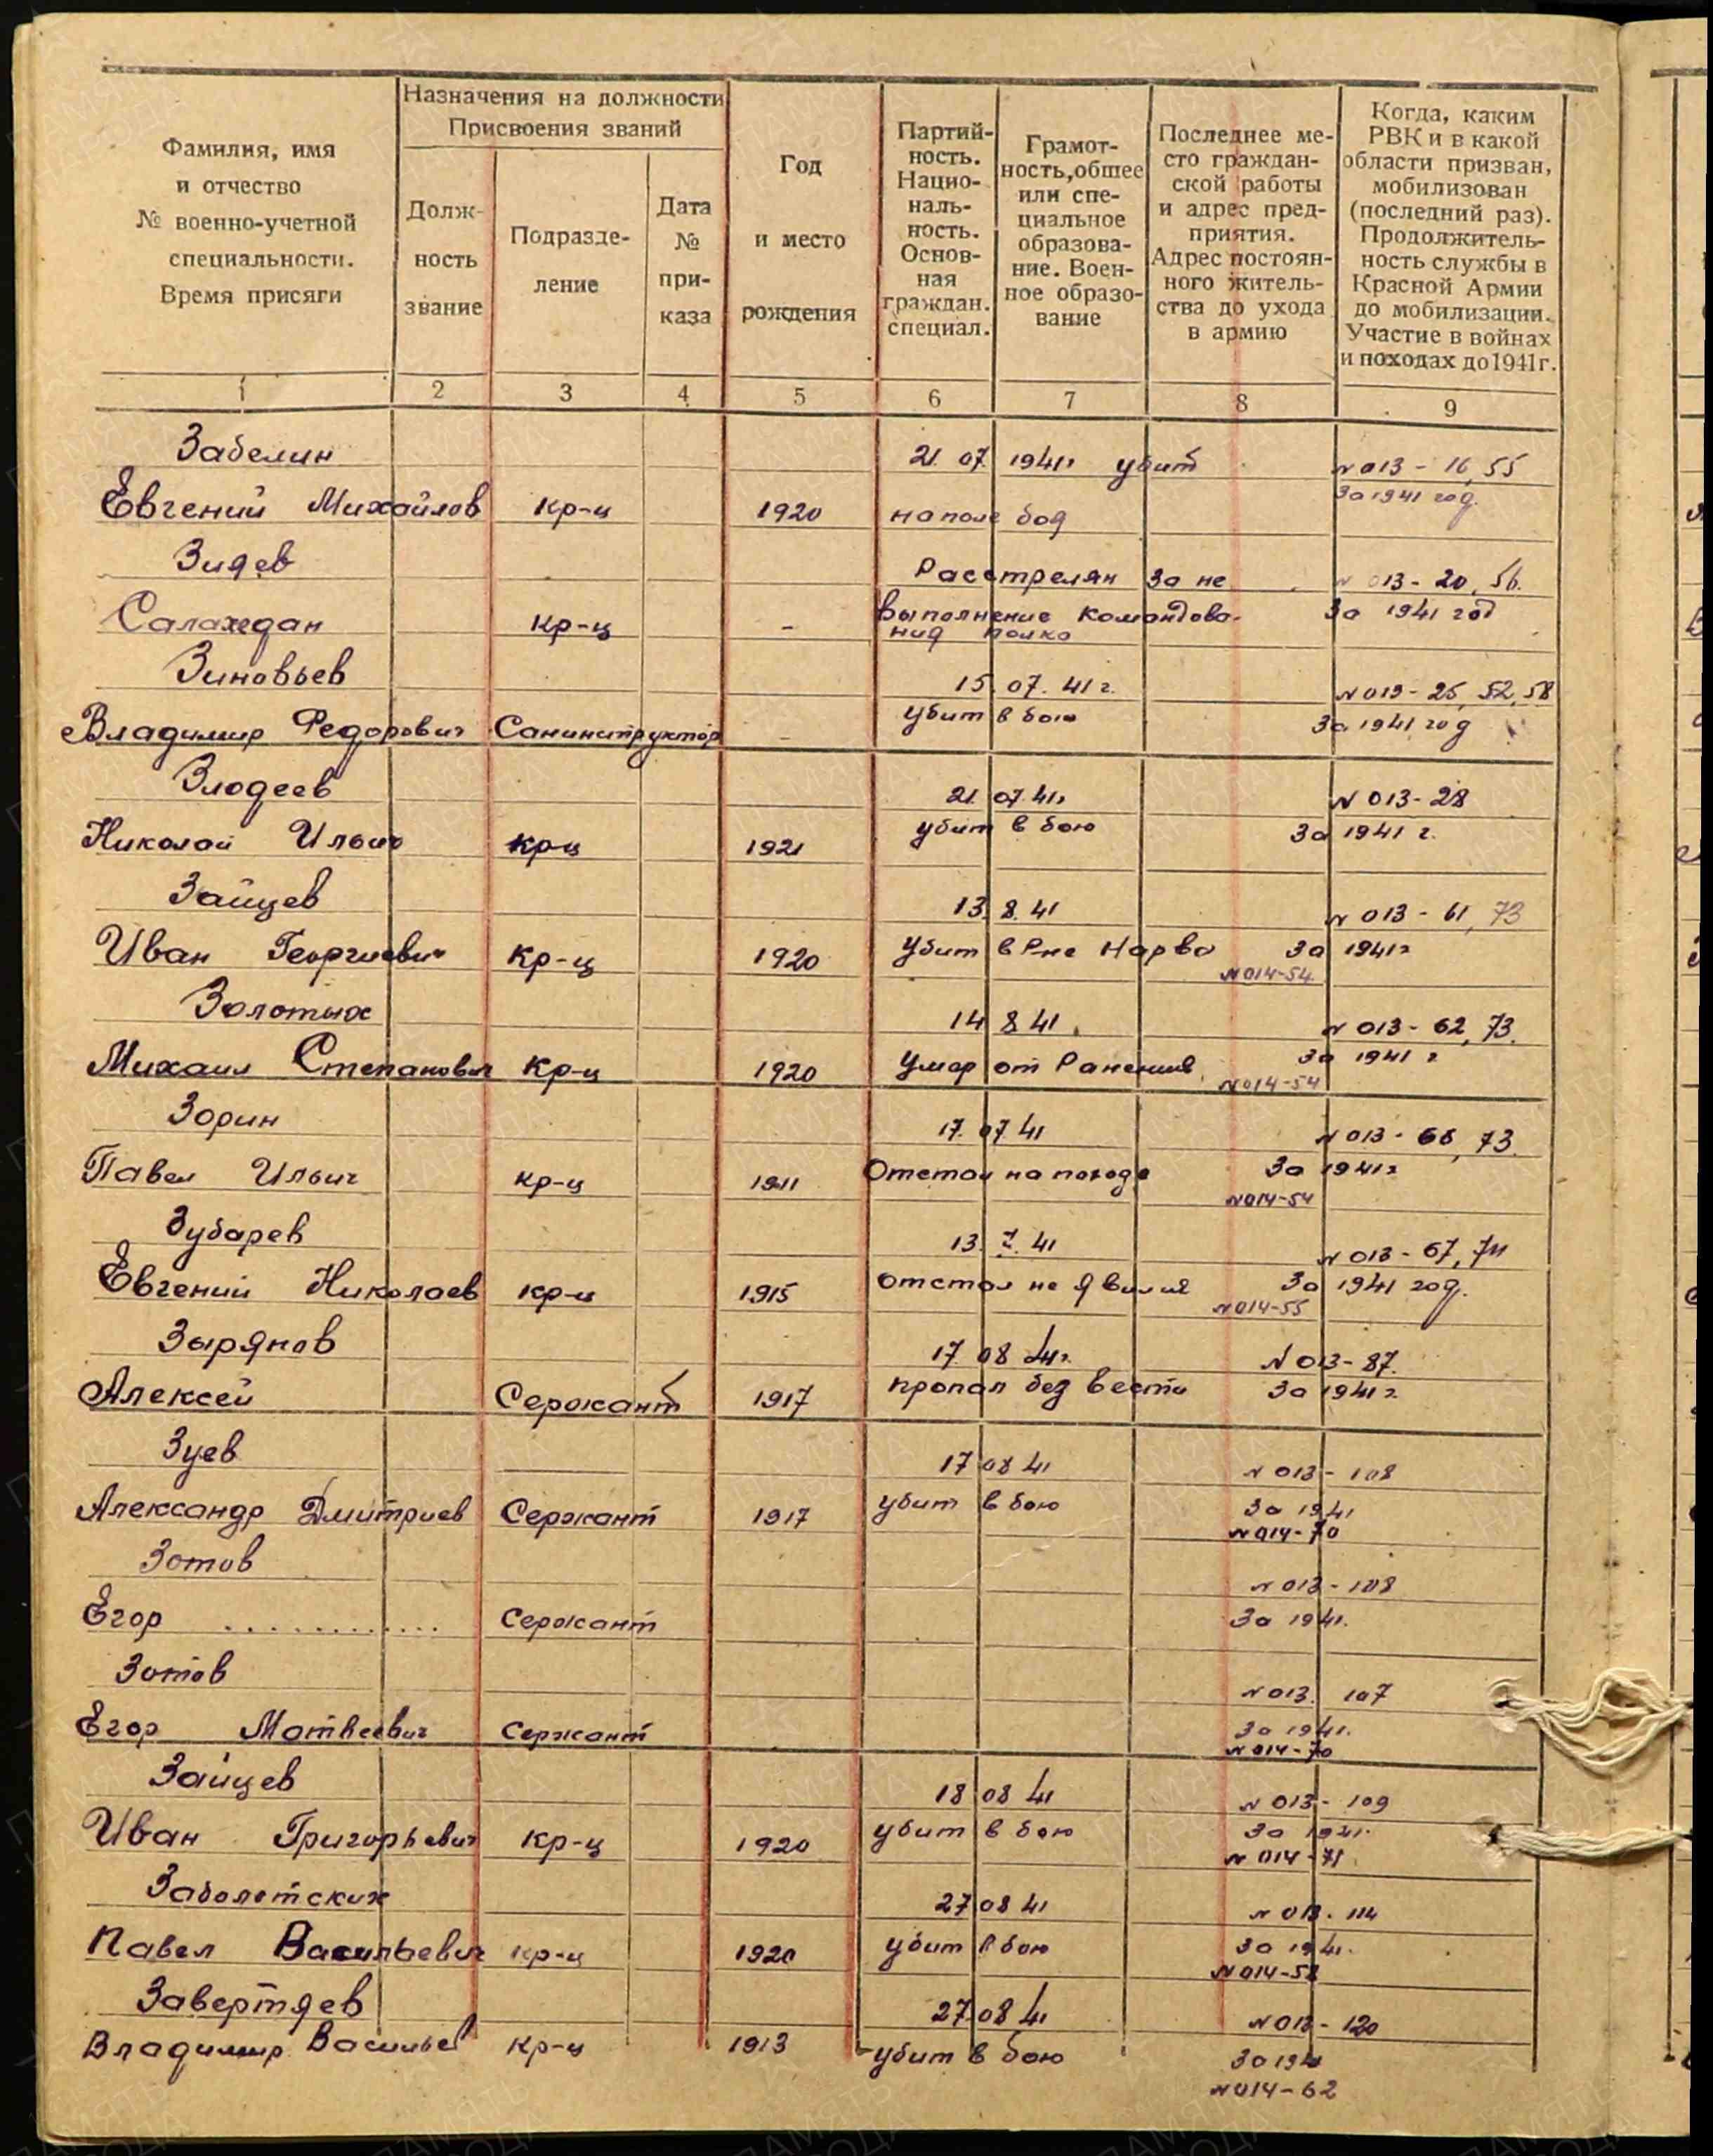 Назначения на должности
Присвоения званий
Фамилия, имя
и отчество
№ военно-учетной
специальности.
Время присяги
Долж-
ность
звание
Подразде-
ление
Дата
№
при-
каза
Год
и место
рождения
Партий-
ность.
Нацио-
наль-
ность.
Основ-
ная
граждан.
специал.
Грамот-
ность, общее
или спе-
циальное
образова-
ние. Воен-
ное образо-
вание
Последнее ме-
сто граждан-
ской работы
и адрес пред-
приятия.
Адрес постоян-
ного житель-
ства до ухода
в армию
Когда, каким
РВК и в какой
области призван,
мобилизован
(последний раз).
Продолжитель-
ность службы в
Красной Армии
до мобилизации.
Участие в войнах
и походах до 1941 г.
1 2 3 4 5 6 7 8 9
Забелин 21. 07. 1941г убит N 013 - 16, 55
За 1941 год.
Евгений Михайлов кр-ц 1920 на поле боя
Зияев Расстрелян За не N 013 - 20, 56.
Салахедан кр-ц - выполнение командова- За 1941 год
ния полка
Зиновьев 15. 07. 41 г. N 013 - 25, 52, 58
Владимир Федорович Санинструктор - убит в бою За 1941 год
Злодеев 21. 07. 41г N 013 - 28
Николай Ильич кр-ц 1921 убит в бою За 1941 г.
Зайцев 13. 8. 41 N 013 - 61, 73
Иван Георгиевич кр-ц 1920 Убит в Р-не Нарва За 1941г
N 014-54.
Золотых 14 8 41. N 013 - 62, 73.
Михаил Степанович кр-ц 1920 Умер от Ранений За 1941 г
N 014-54
Зорин 17. 07 41 N 013 - 66, 73.
Павел Ильич кр-ц 1911 Отстал на походе За 1941г
N 014-54
Зубарев 13. 7. 41 N 013 - 67, 74
Евгений Николаев кр-ц 1915 Отстал не явился За 1941 год.
N 014-55
Зырянов 17 08 41г. N 013 - 87.
Алексей Сержант 1917 пропал без вести За 1941 г.
Зуев 17 08 41 N 013 - 108
Александр Дмитриев Сержант 1917 убит в бою За 1941
N 014-70
Зотов N 013 - 108
Егор ............ Сержант За 1941.
Зотов N 013. 107
Егор Матвеевич Сержант За 1941.
N 014-70
Зайцев 18 08 41 N 013 - 109
Иван Григорьевич кр-ц 1920 убит в бою За 1941.
N 014-71
Заболотских 27 08 41 N 013. 114
Павел Васильевич кр-ц 1920 убит в бою За 1941.
N 014-58
Завертяев 27 08 41 N 013 - 120
Владимир Васильев кр-ц 1913 убит в бою За 194
N 014-62